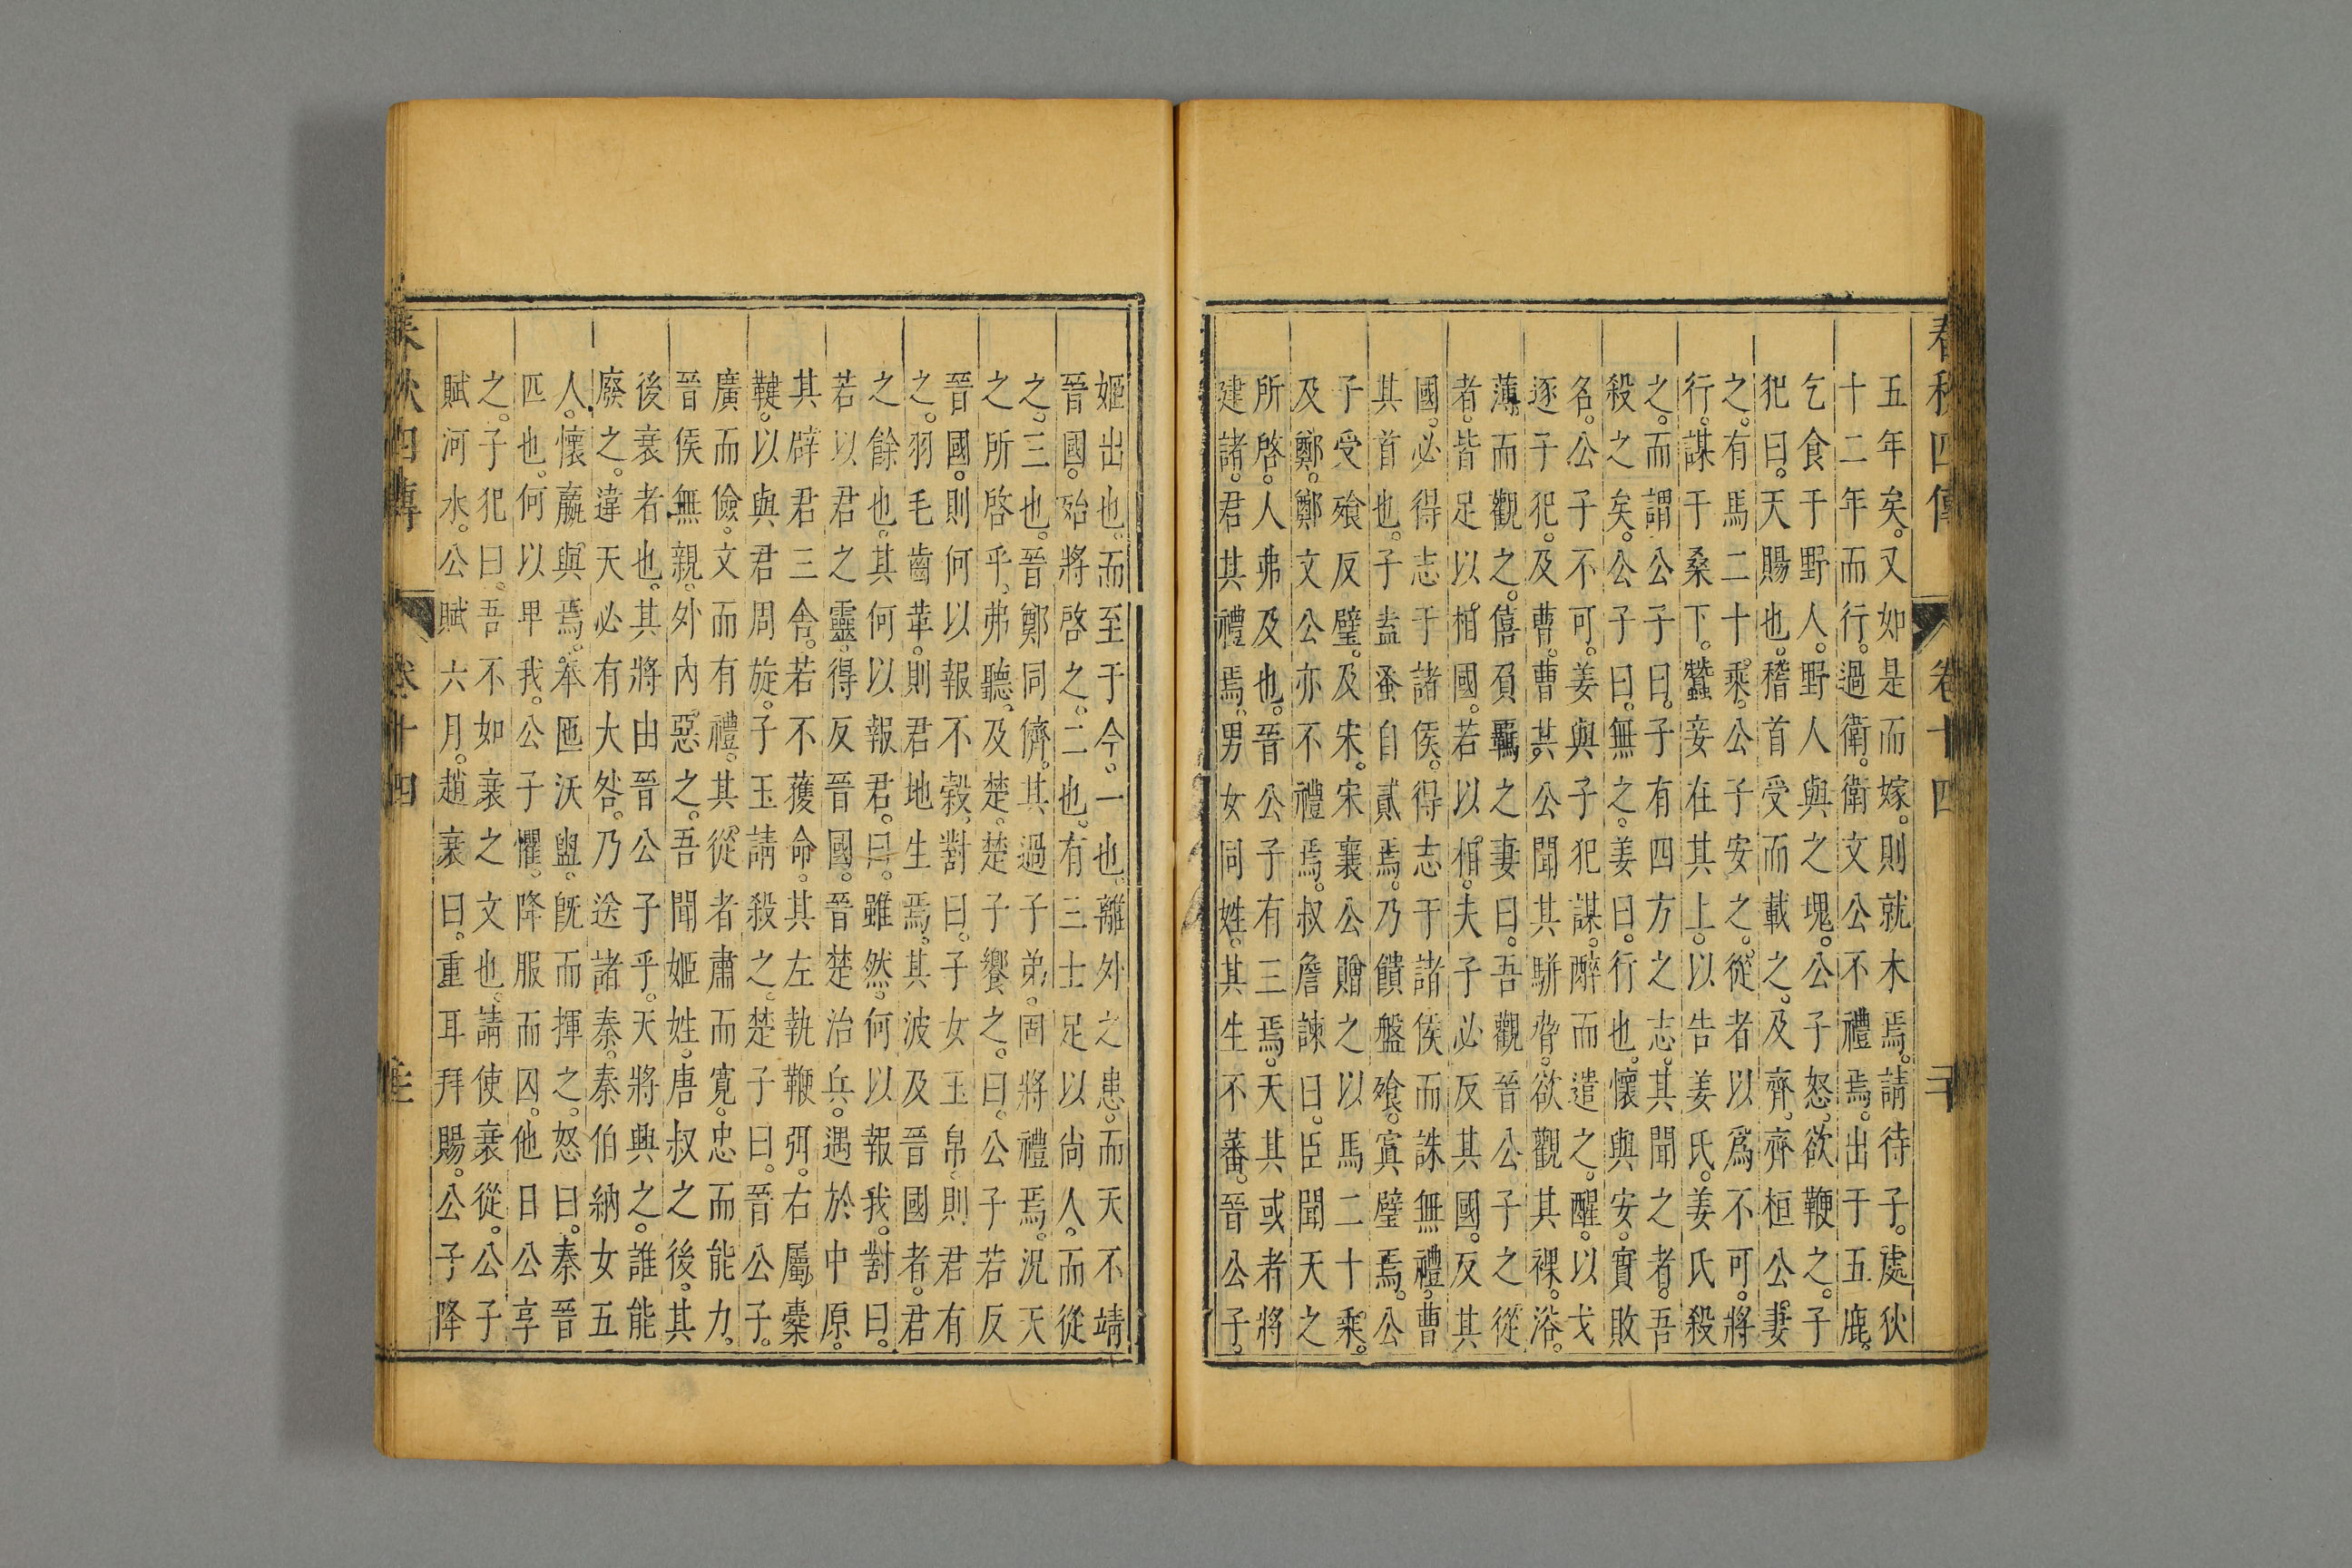 春秋四傳 卷十四
五年矣。又如是而嫁。則就木焉。請待子。處狄
十二年而行。過衛。衛文公不禮焉。出于五鹿。
乞食于野人。野人與之塊。公子怒。欲鞭之。子
犯曰。天賜也。稽首受而載之。及齊。齊桓公妻
之。有馬二十乘。公子安之。從者以爲不可。將
行。謀于桑下。蠶妾在其上。以告姜氏。姜氏殺
之。而謂公子曰。子有四方之志。其聞之者。吾
殺之矣。公子曰。無之。姜曰。行也。懷與安。實敗
名。公子不可。姜與子犯謀。醉而遣之。醒。以戈
逐子犯。及曹。曹共公聞其駢脅。欲觀其裸。浴。
薄而觀之。僖負羈之妻曰。吾觀晉公子之從
者。皆足以相國。若以相。夫子必反其國。反其
國。必得志于諸侯。得志于諸侯。而誅無禮。曹
其首也。子盍蚤自貳焉。乃饋盤飧。寘璧焉。公
子受飧反璧。及宋。宋襄公贈之以馬二十乘。
及鄭。鄭文公亦不禮焉。叔詹諫曰。臣聞天之
所啓。人弗及也。晉公子有三焉。天其或者將
建諸。君其禮焉。男女同姓。其生不蕃。晉公子。
姬出也。而至于今。一也。離外之患。而天不靖
晉國。殆將啓之。二也。有三士足以尚人。而從
之。三也。晉鄭同儕。其過子弟。固將禮焉。況天
之所啓乎。弗聽。及楚。楚子饗之。曰。公子若反
晉國。則何以報不穀。對曰。子女玉帛。則君有
之。羽毛齒革。則君地生焉。其波及晉國者。君
之餘也。其何以報君。曰。雖然。何以報我。對曰。
若以君之靈。得反晉國。晉楚治兵。遇於中原。
其辟君三舍。若不獲命。其左執鞭弭。右屬櫜
鞬。以與君周旋。子玉請殺之。楚子曰。晉公子。
廣而儉。文而有禮。其從者肅而寬。忠而能力。
晉侯無親。外內惡之。吾聞姬姓。唐叔之後。其
後衰者也。其將由晉公子乎。天將興之。誰能
廢之。違天必有大咎。乃送諸秦。秦伯納女五
人。懷嬴與焉。奉匜沃盥。旣而揮之。怒曰。秦晉
匹也。何以卑我。公子懼。降服而囚。他日公享
之。子犯曰。吾不如衰之文也。請使衰從。公子
賦河水。公賦六月。趙衰曰。重耳拜賜。公子降
春秋四傳 卷十四